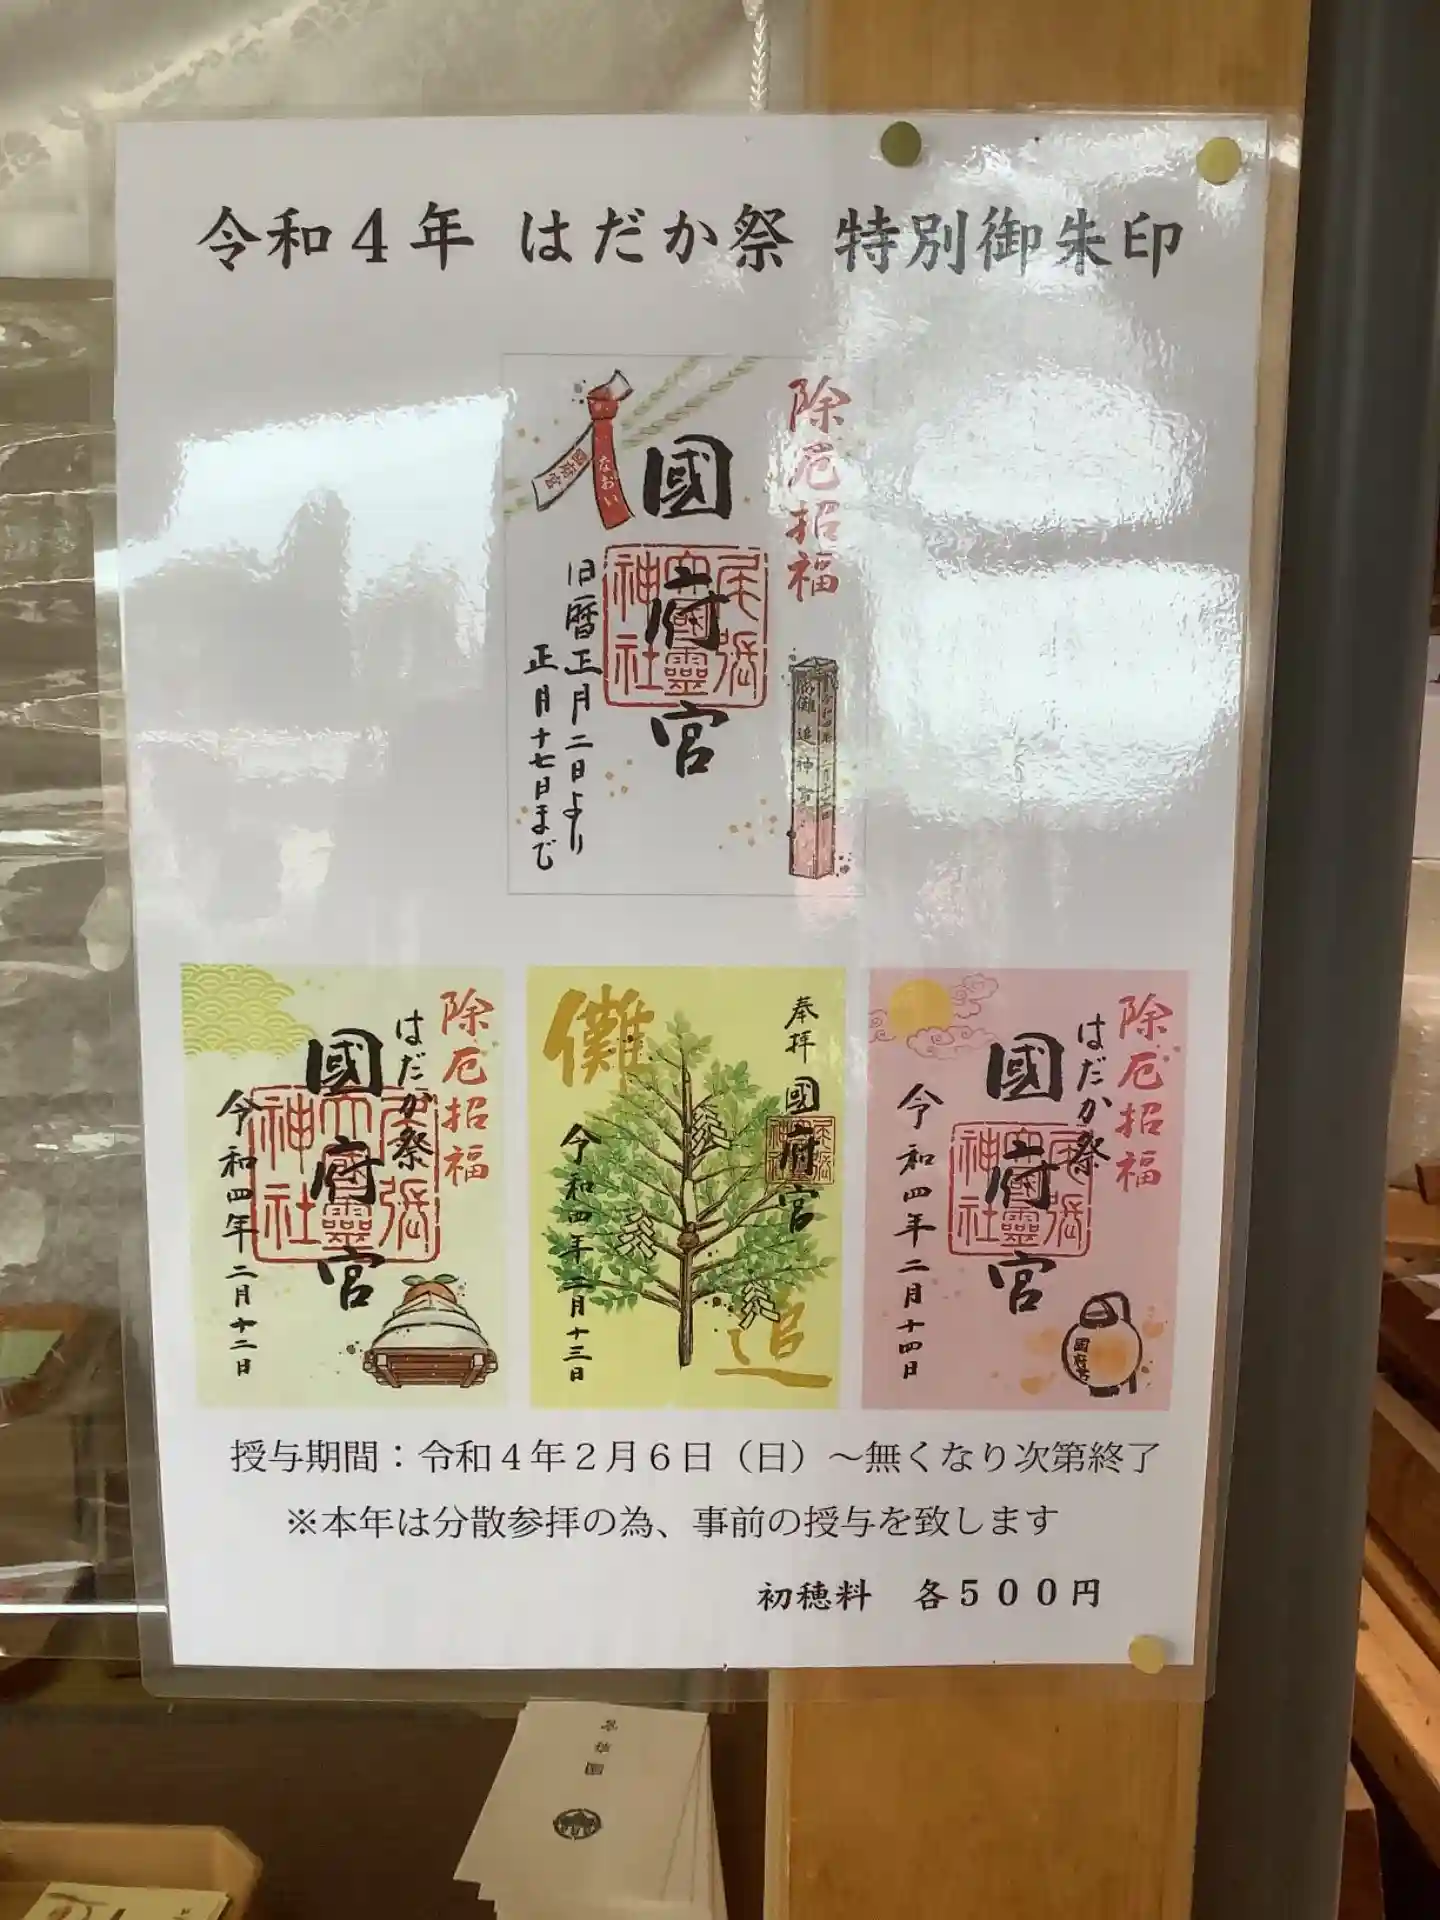 令和４年 はだか祭 特別御朱印
除厄招福
國府宮
尾張
大國靈
神社
なおい
國府宮
旧暦正月二日より
正月十七日まで
儺追神
除厄招福
はだか祭
國府宮
尾張
大國靈
神社
令和四年二月十二日
奉拝
國府宮
儺追
令和四年二月十三日
除厄招福
はだか祭
國府宮
尾張
大國靈
神社
令和四年二月十四日
国府宮
授与期間：令和４年２月６日（日）～無くなり次第終了
※本年は分散参拝の為、事前の授与を致します
初穂料　各５００円
國府宮